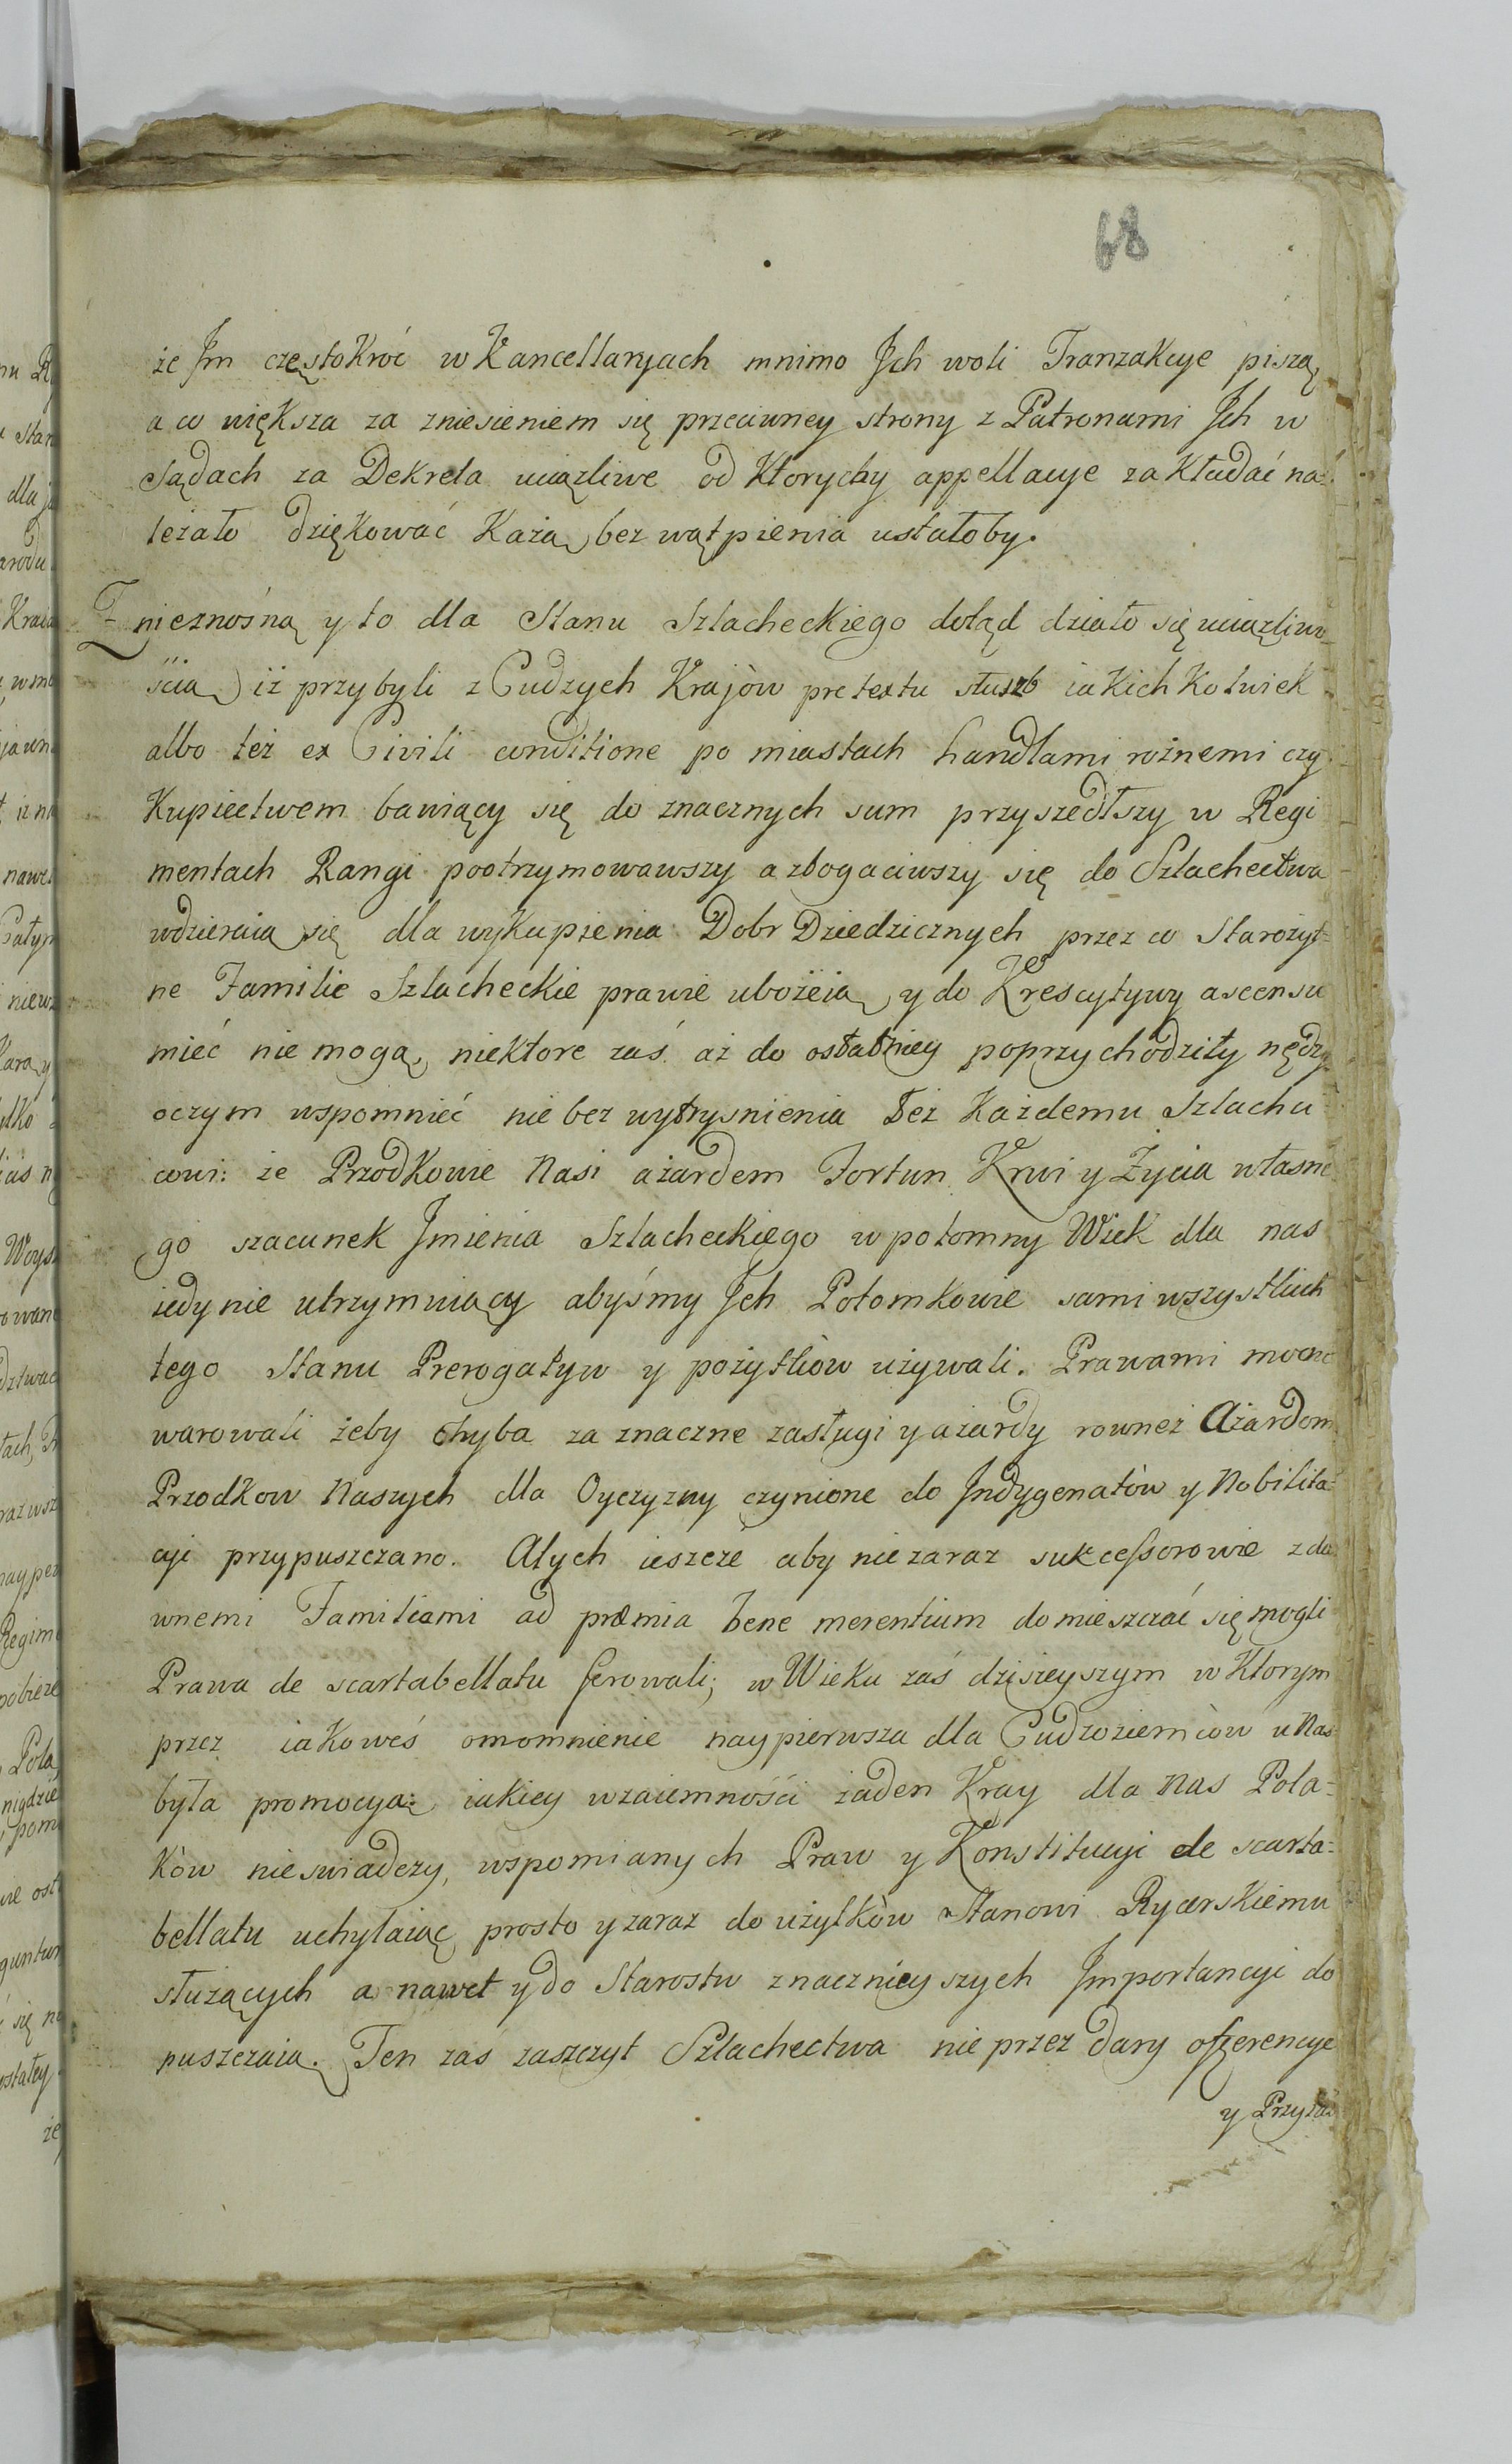 68
że Jm częstokroć w Kancellaryach mnimo Jch woli Tranzakcye piszą,
a co większa za zniesieniem się przeciwney strony z Patronami Jch w
Sądach za Dekreta uciążliwe od ktorychby appellacye zakładać na=
leżało dziękować każą, bez wątpienia ustałoby.
Z nieznośną y to dla Stanu Szlacheckiego dotąd działo się uciążliwo=
ścią, iż przybyli z Cudzych Krajòw pretextu służb iakichkolwiek
albo też ex Civili conditione po miastach handlami rożnemi czy
Kupiectwem bawiący się do znacznych sum przyszedłszy w Regi
mentach Rangi pootrzymowawszy a zbogaciwszy się do Szlachectwa
wdzieraią się dla wykupienia Dobr Dziedzicznych przez co Starożyt=
ne Familie Szlacheckie prawie ubożeią, y do Krescytywy ascensu
mieć nie mogą, niektore zaś aż do ostatniey poprzychodziły nędzy
oczym wspomnieć nie bez wytrysnienia Łez każdemu Szlachci
cowi: że Przodkowie Nasi ażardem Fortun Krwi y Życia własne
go szacunek Jmienia Szlacheckiego w potomny Wiek dla nas
iedynie utrzymuiący abyśmy Jch Potomkowie sami wszystkich
tego Stanu Prerogatyw y pożytkòw używali. Prawami mocno
warowali żeby chyba za znaczne zasługi y ażardy rowneż Ażardom
Przodkow Naszych dla Oyczyzny czynione do Jndygenatòw y Nobilita=
cyi przypuszczano. A tych ieszcze aby nie zaraz sukcessorowie z da
wnemi Familiami ad præmia bene merentium domieszczać się mogli
Prawa de scartabellatu ferowali; w Wieku zaś dzisieyszym w ktorym
przez iakoweś omomnienie naypierwsza dla Cudzoziemcòw u Nas
była promocya: iakiey wzaiemności żaden Kray dla Nas Pola=
kòw nieswiadczy, wspomianych Praw y Konstitucyi de scarta=
bellatu uchylaiąc, prosto y zaraz do użytkòw Stanowi Rycerskiemu
służących a nawet y do Starostw znacznieyszych Jmportancyi do
puszczaią. Ten zaś zaszczyt Szlachectwa nie przez dary offerencye
y Przyjaź